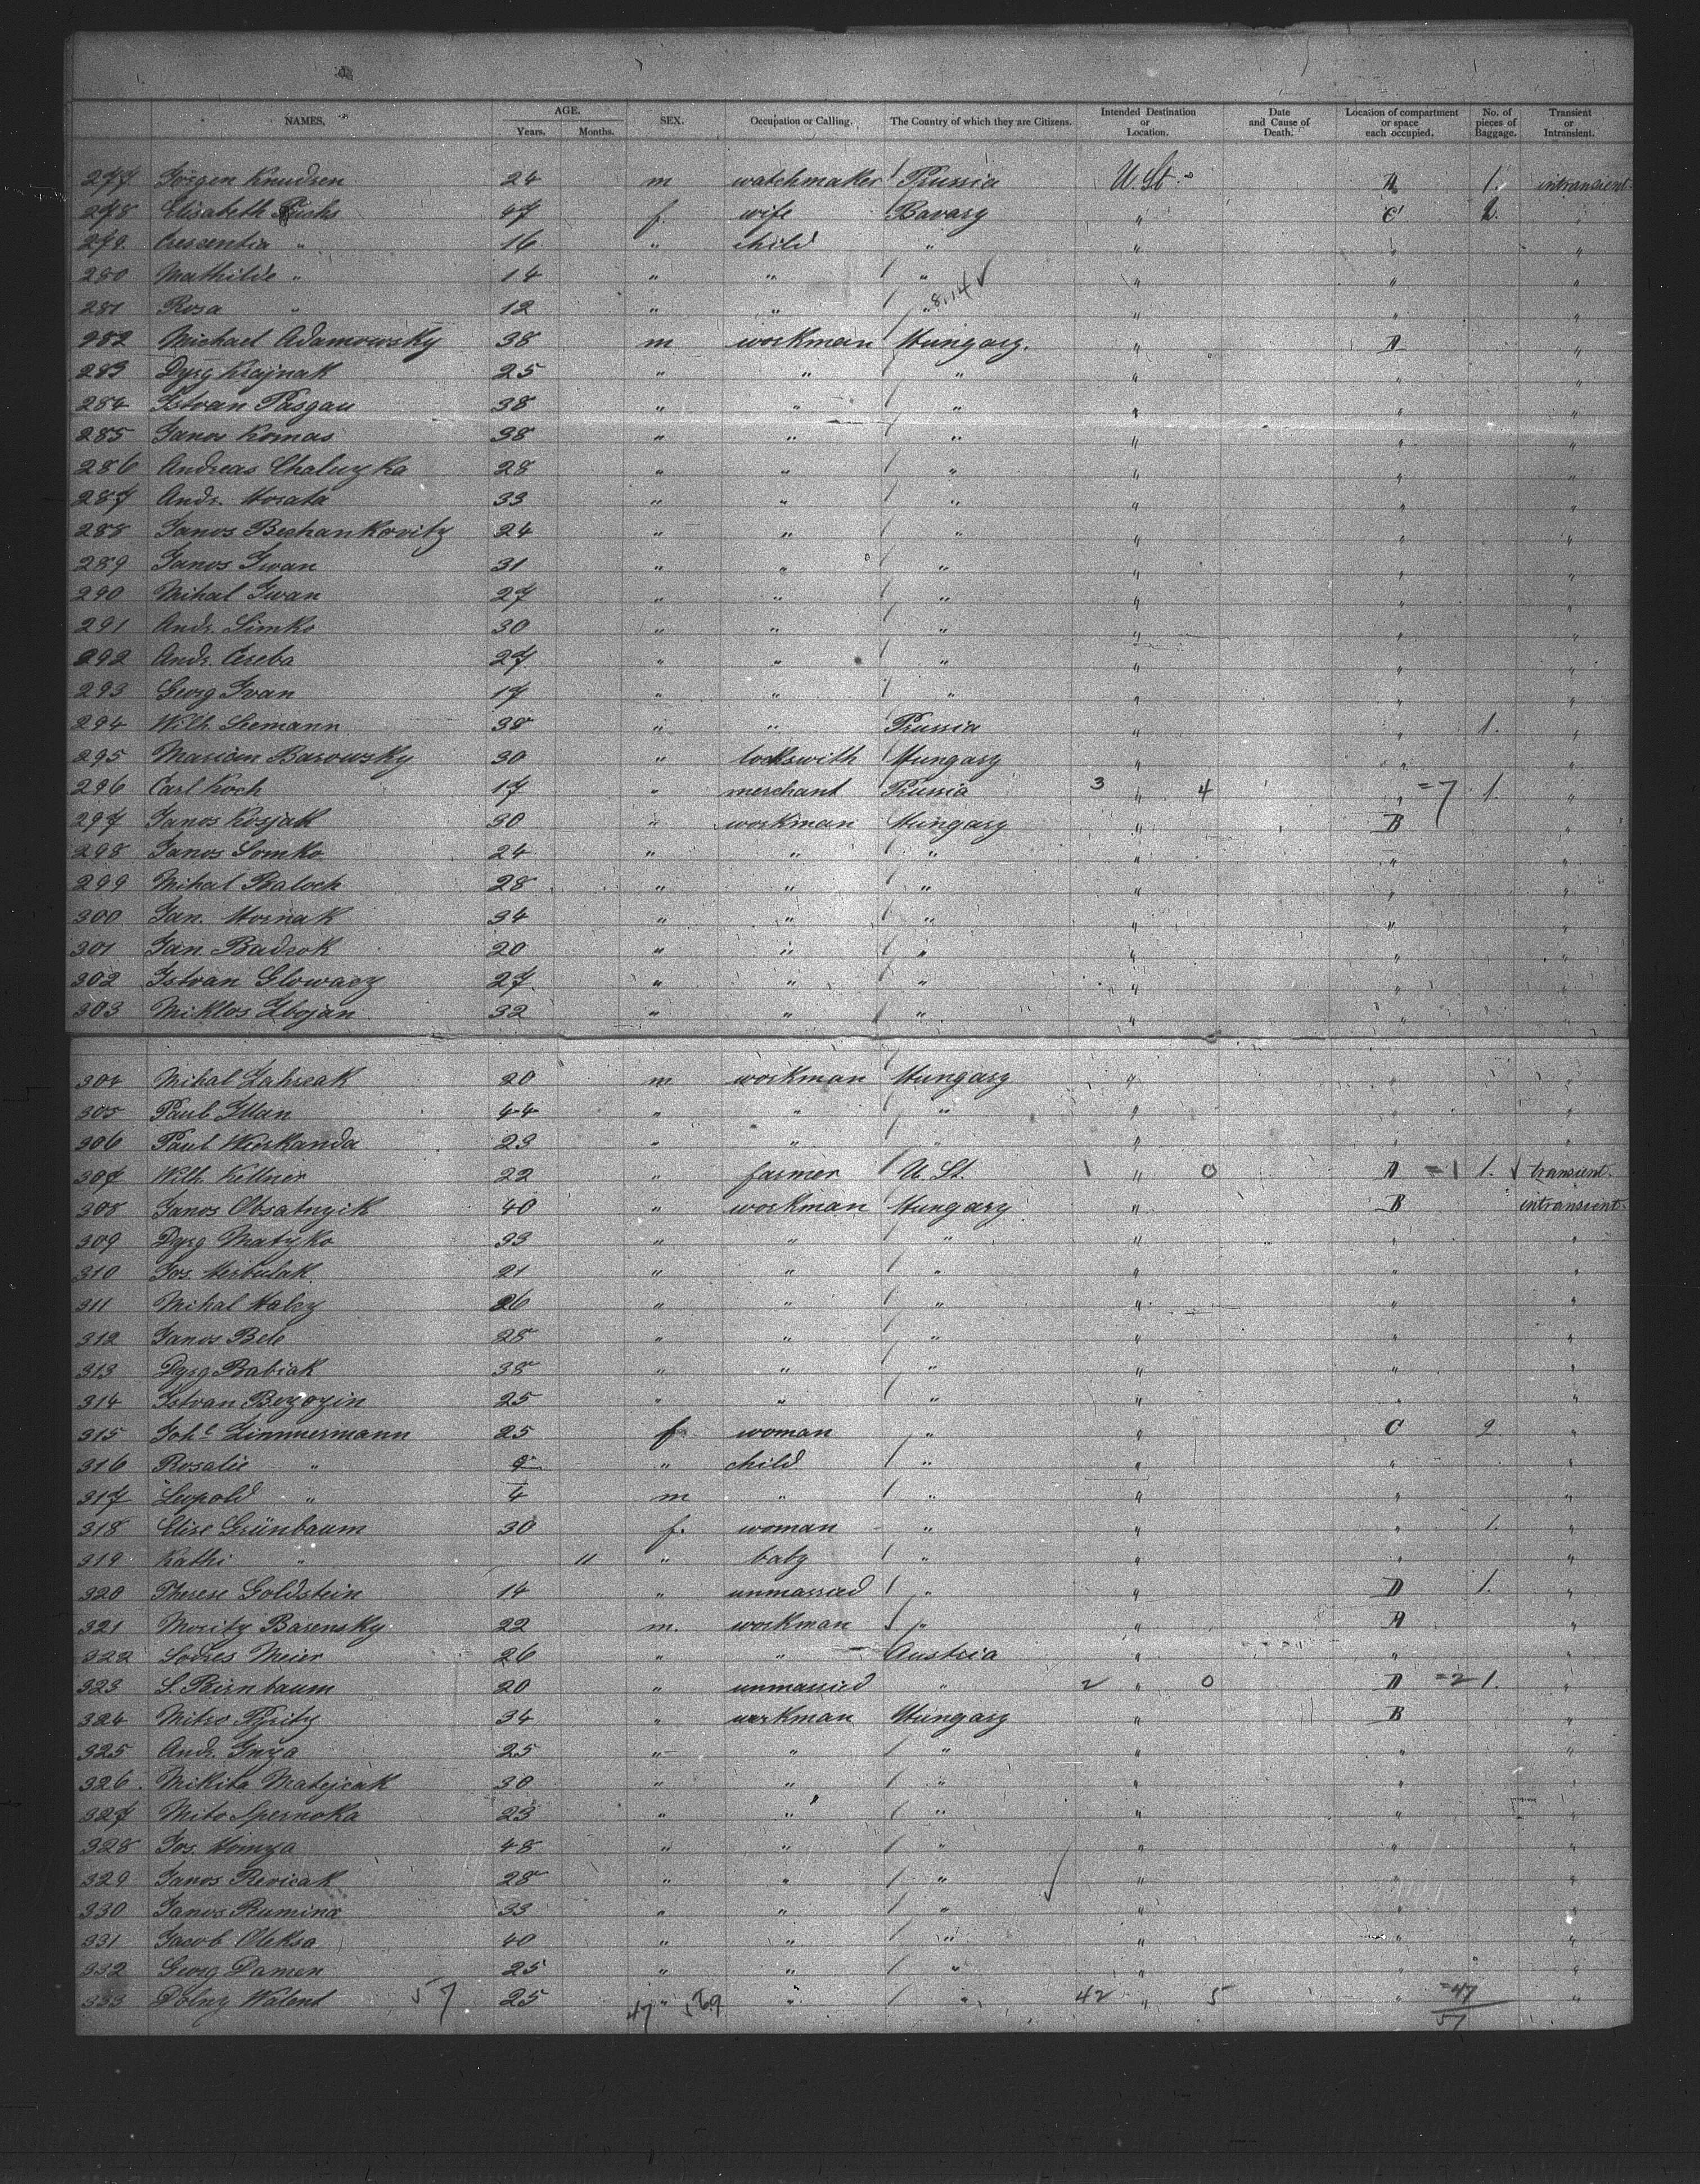 NAMES. AGE. Years. Months. SEX. Occupation or Calling. The Country of which they are Citizens. Intended Destination or Location. Date and Cause of Death. Location of compartment or space each occupied. No. of pieces of Baggage. Transient or Intransient.
277 Jörgen Knudsen 24 m watchmaker Prussia U. St. A 1. intransient
278 Elisabeth Fuchs 47 f. wife Bavary " C 2. "
279. Crescentia " 16 " child " " " "
280 Mathilde " 14 " " " " " "
281 Rosa " 12 " " " 8.14 " " "
282 Michael Adamowsky 38 m workman Hungary. " A "
283 Dyrg Krajnak 25 " " " " " "
284 Istvan Pasgau 38 " " " " " "
285 Janos Kornas 38 " " " " " "
286 Andreas Chaluzka 28 " " " " " "
287 Andr. Horata 33 " " " " " "
288 Janos Bechankovitz 24 " " " " " "
289 Janos Iwan 31 " " " " " "
290 Mihal Iwan 27 " " " " " "
291 Andr. Simko 30 " " " " " "
292 Andr. Cseba 27 " " " " " "
293 Georg Ivan 17 " " " " " "
294 Wilh. Seemann 38 " " Prussia " " 1. "
295 Marian Barowsky 30 " lockswith Hungary " " "
296 Carl Koch 17 " merchant Prussia 3 " 4 " =7 1. "
297 Janos Kosjak 30 " workman Hungary " B "
298 Janos Somko 24 " " " " " "
299 Mihal Baloch 28 " " " " " "
300 Jan. Hornak 34 " " " " " "
301 Jan. Badsok 20 " " " " " "
302 Istvan Glowacz 27. " " " " " "
303 Miklos Zbojan 32 " " " " " "
304 Mihal Zahreak 20 m workman Hungary " " "
305 Paul Illan 44 " " " " " "
306 Paul Wieskanda 23 " " " " " "
307 Wilh. Kellner 22 " farmer U. St. 1 " 0 A =1 1. transient.
308 Janos Obsatnzik 40 " workman Hungary " B intransient.
309 Dyrg Matyko 33 " " " " " "
310 Jos. Herbulak 21 " " " " " "
311 Mihal Halsz 26 " " " " " "
312 Janos Bele 28 " " " " " "
313 Dyrg Babiak 38 " " " " " "
314 Istvan Bezozin 25 " " " " " "
315 Johe Zimmermann 25 f. woman " " C 2 "
316 Rosalie " 9 " child " " " "
317 Leopold " 4 m " " " " "
318 Elise Grünbaum 30 f. woman " " " 1. "
319 Kathi " 11 " baby " " " "
320 Therese Goldstein 14 " unmarried " " D 1. "
321 Moritz Barensky 22 m. workman " " A "
322 Meier 26 " " Austria " " "
323 S. Birnbaum 20 " unmarried " 2 " 0 A =2 1. "
324 Mitro Pyritz 34 " workman Hungary " B "
325 Andr. Gnza 25 " " " " " "
326. Mikita Matejcak 30 " " " " " "
327 Mito Spernoka 23 " " " " " "
328 Jos. Homza 48 " " " " " "
329 Janos Revicak 28 " " " " " "
330 Janos Rumina 33 " " " " " "
331 Jacob Oleksa 40 " " " " " "
332 Georg Damen 25 " " " " " "
333 Dolny Walent 57 25 " " " 42 " 5 " =47 "
47 57